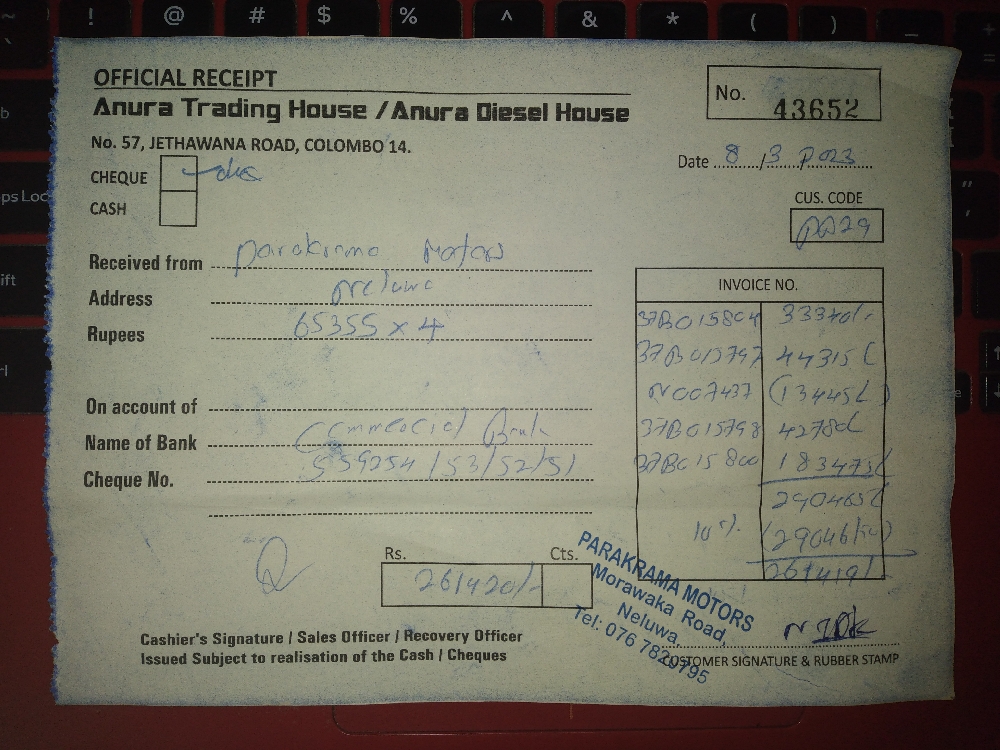 OFFICIAL RECEIPT
No. 43652
Anura Trading House / Anura Diesel House
No. 57, JETHAWANA ROAD, COLOMBO 14.
Date 8 / 3 2023
CHEQUE
CASH
CUS. CODE
PA29
Received from Parakrama Motors
Address Neluwa
Rupees 65355 x 4
On account of
Name of Bank Commercial Bank
Cheque No. 559254 / 53 / 52 / 51
INVOICE NO.
37B015804 33340/-
37B015797 44315/-
N007437 (13445/-)
37B015798 42780/-
37B015800 183475/-
290465/-
10% (29046/50)
261419/-
Rs. Cts.
261420/-
PARAKRAMA MOTORS
Morawaka Road,
Neluwa,
Tel: 076 7820795
Cashier's Signature / Sales Officer / Recovery Officer
Issued Subject to realisation of the Cash / Cheques
CUSTOMER SIGNATURE & RUBBER STAMP